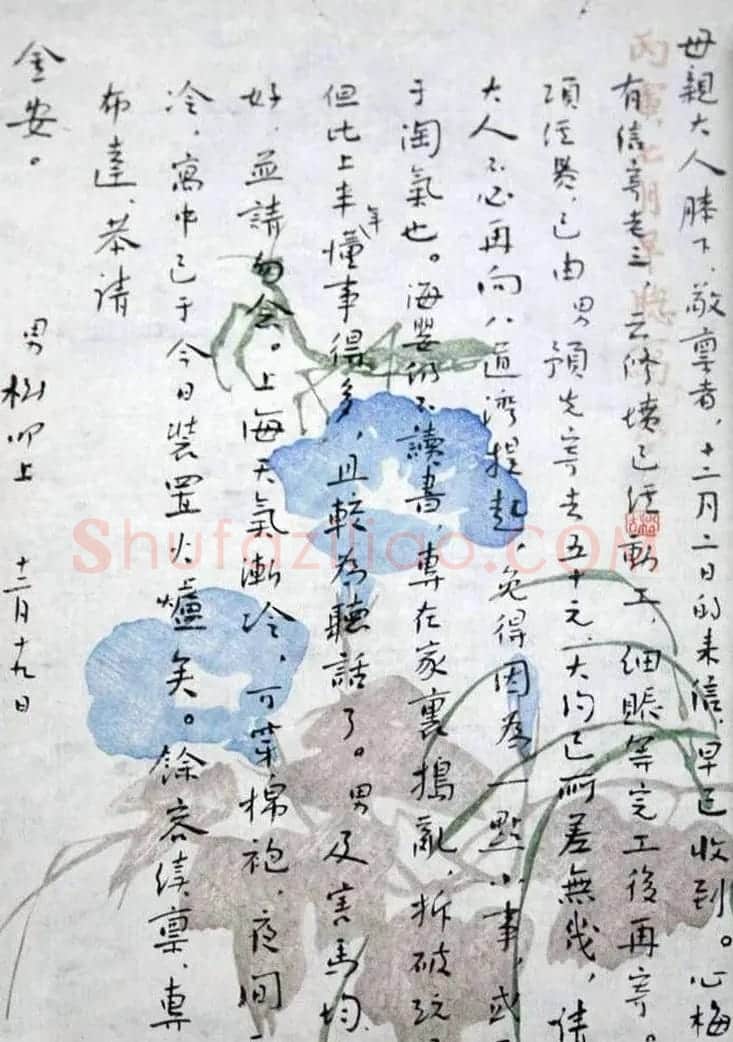 母親大人膝下、敬稟者，十二月二日的来信，早已收到。心梅
有信寄老三，云修墳已經動工，細賬等完工後再寄。
項經費，已由男預先寄去五十元，大約已所差無幾，請
大人不必再向八道灣提起，免得因為一點小事，或
于淘氣也。海嬰仍不讀書，專在家裏搗亂，拆破玩
但比上半年懂事得多，且較為聽話了。男及害馬均
好，並請勿念。上海天氣漸冷，可穿棉袍，夜間
冷，寓中已于今日裝置火爐矣。餘容續稟，專
布達，恭請
金安。
男樹叩上 十二月十九日
Shufaziliao.com